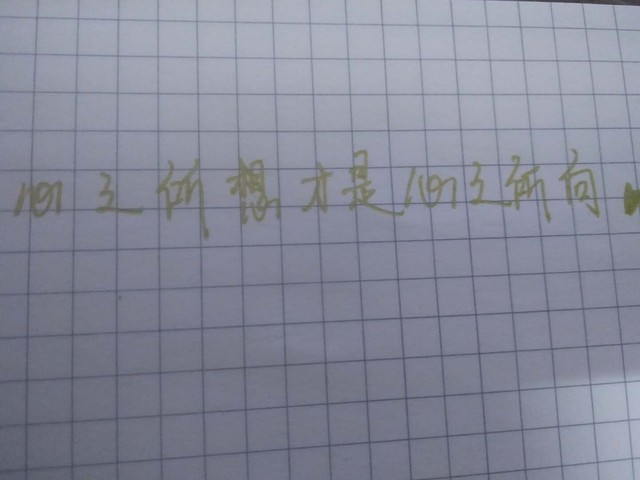 心之所想才是心之所向